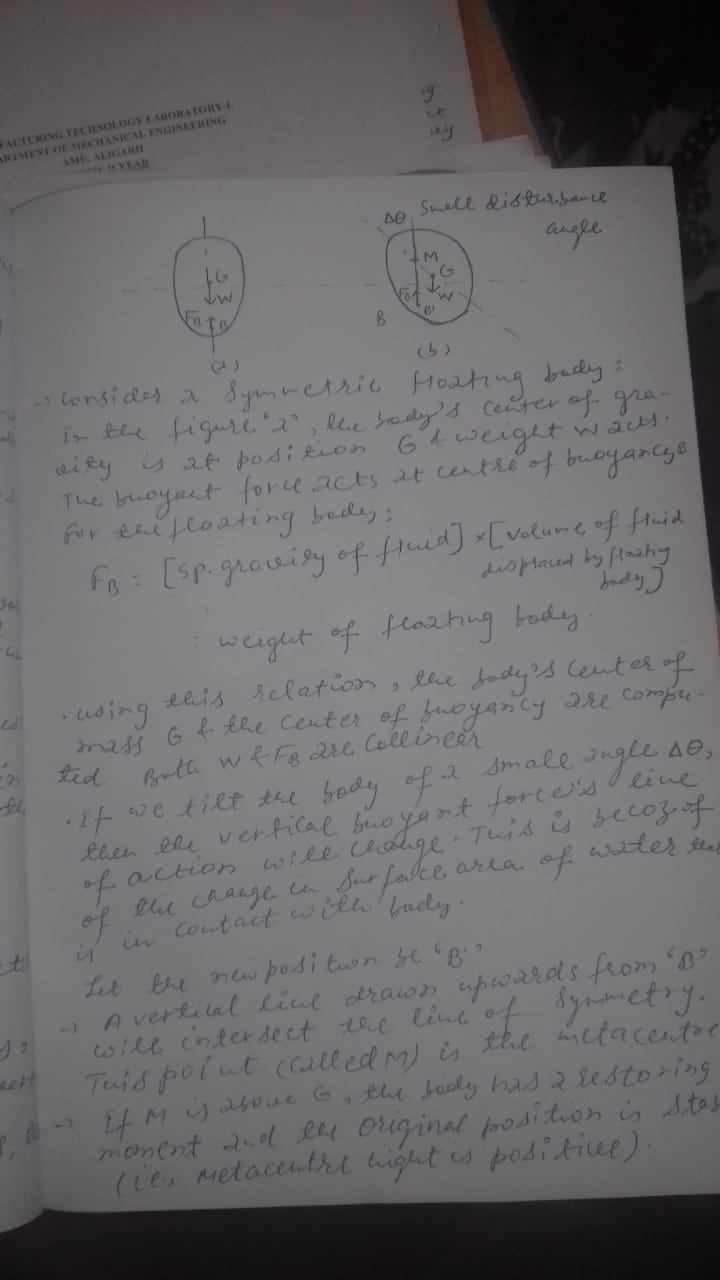 FACTURING TECHNOLOGY LABORATORY-I
ARTMENT OF MECHANICAL ENGINEERING
AMU, ALIGARH
YEAR
Δθ Small disturbance
angle
G
W
FB B
(a)
M
G
FB W
B B'
(b)
→ Consider a Symmetric floating body:
In the figure 'a', the body's center of gra-
vity is at position G & weight W acts.
The buoyant force acts at centre of buoyancy B
for the floating body:
FB = [sp. gravity of fluid] × [volume of fluid
displaced by floating
body]
: weight of floating body.
• using this relation, the body's center of
mass G & the center of buoyancy are compu-
ted Both W & FB are collinear
• If we tilt the body of a small angle Δθ,
then the vertical buoyant force's line
of action will change. This is becoz of
of the change in surface area of water that
is in contact with body.
Let the new position be "B'"
→ A vertical line drawn upwards from "B'"
will intersect the line of symmetry.
This point (called M) is the metacentre
→ If M is above G, the body has a restoring
moment and the original position is stab
(i.e., metacentre hight is positive).